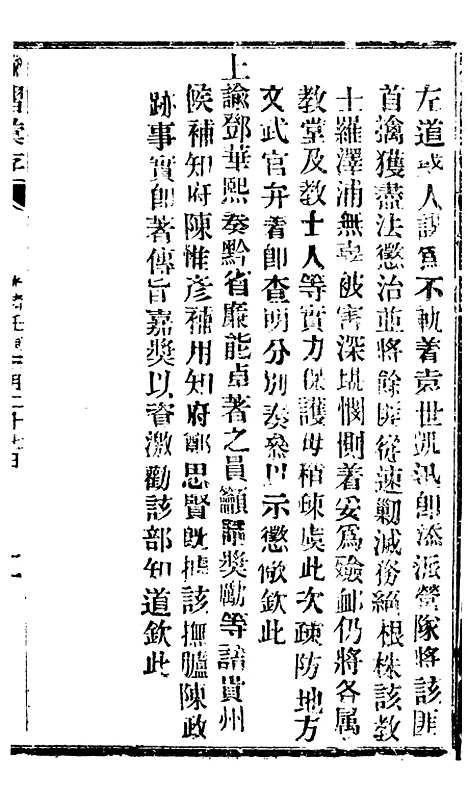 左道惑人謀為不軌着袁世凱迅即添派營隊將該匪
首擒獲盡法懲治並將餘匪從速勦滅務絕根株該教
士羅澤浦無辜被害深堪憫惻着妥為殮卹仍將各属
教堂及教士人等實力保護毋稍疎虞此次疎防地方
文武官弁着即查明分別奏參以示懲儆欽此
上諭鄧華熙奏黔省廉能卓著之員籲懇獎勵等語貴州
候補知府陳惟彦補用知府鄺思賢既據該撫臚陳政
跡事實即著傳旨嘉獎以資激勸該部知道欽此